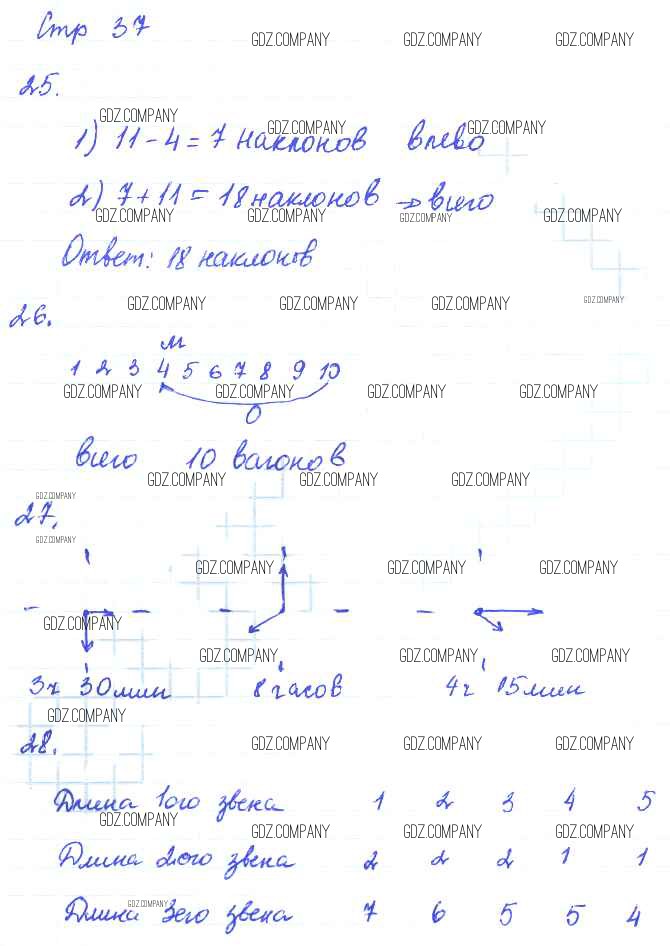 Стр 37
25.
1) 11 - 4 = 7 наклонов влево
2) 7 + 11 = 18 наклонов → всего
Ответ: 18 наклонов
26.
М
1 2 3 4 5 6 7 8 9 10
О
всего 10 вагонов
27.
3ч 30 мин 8 часов 4ч 15 мин
28.
Длина 1ого звена 1 2 3 4 5
Длина 2ого звена 2 2 2 1 1
Длина 3его звена 7 6 5 5 4
GDZ.COMPANY